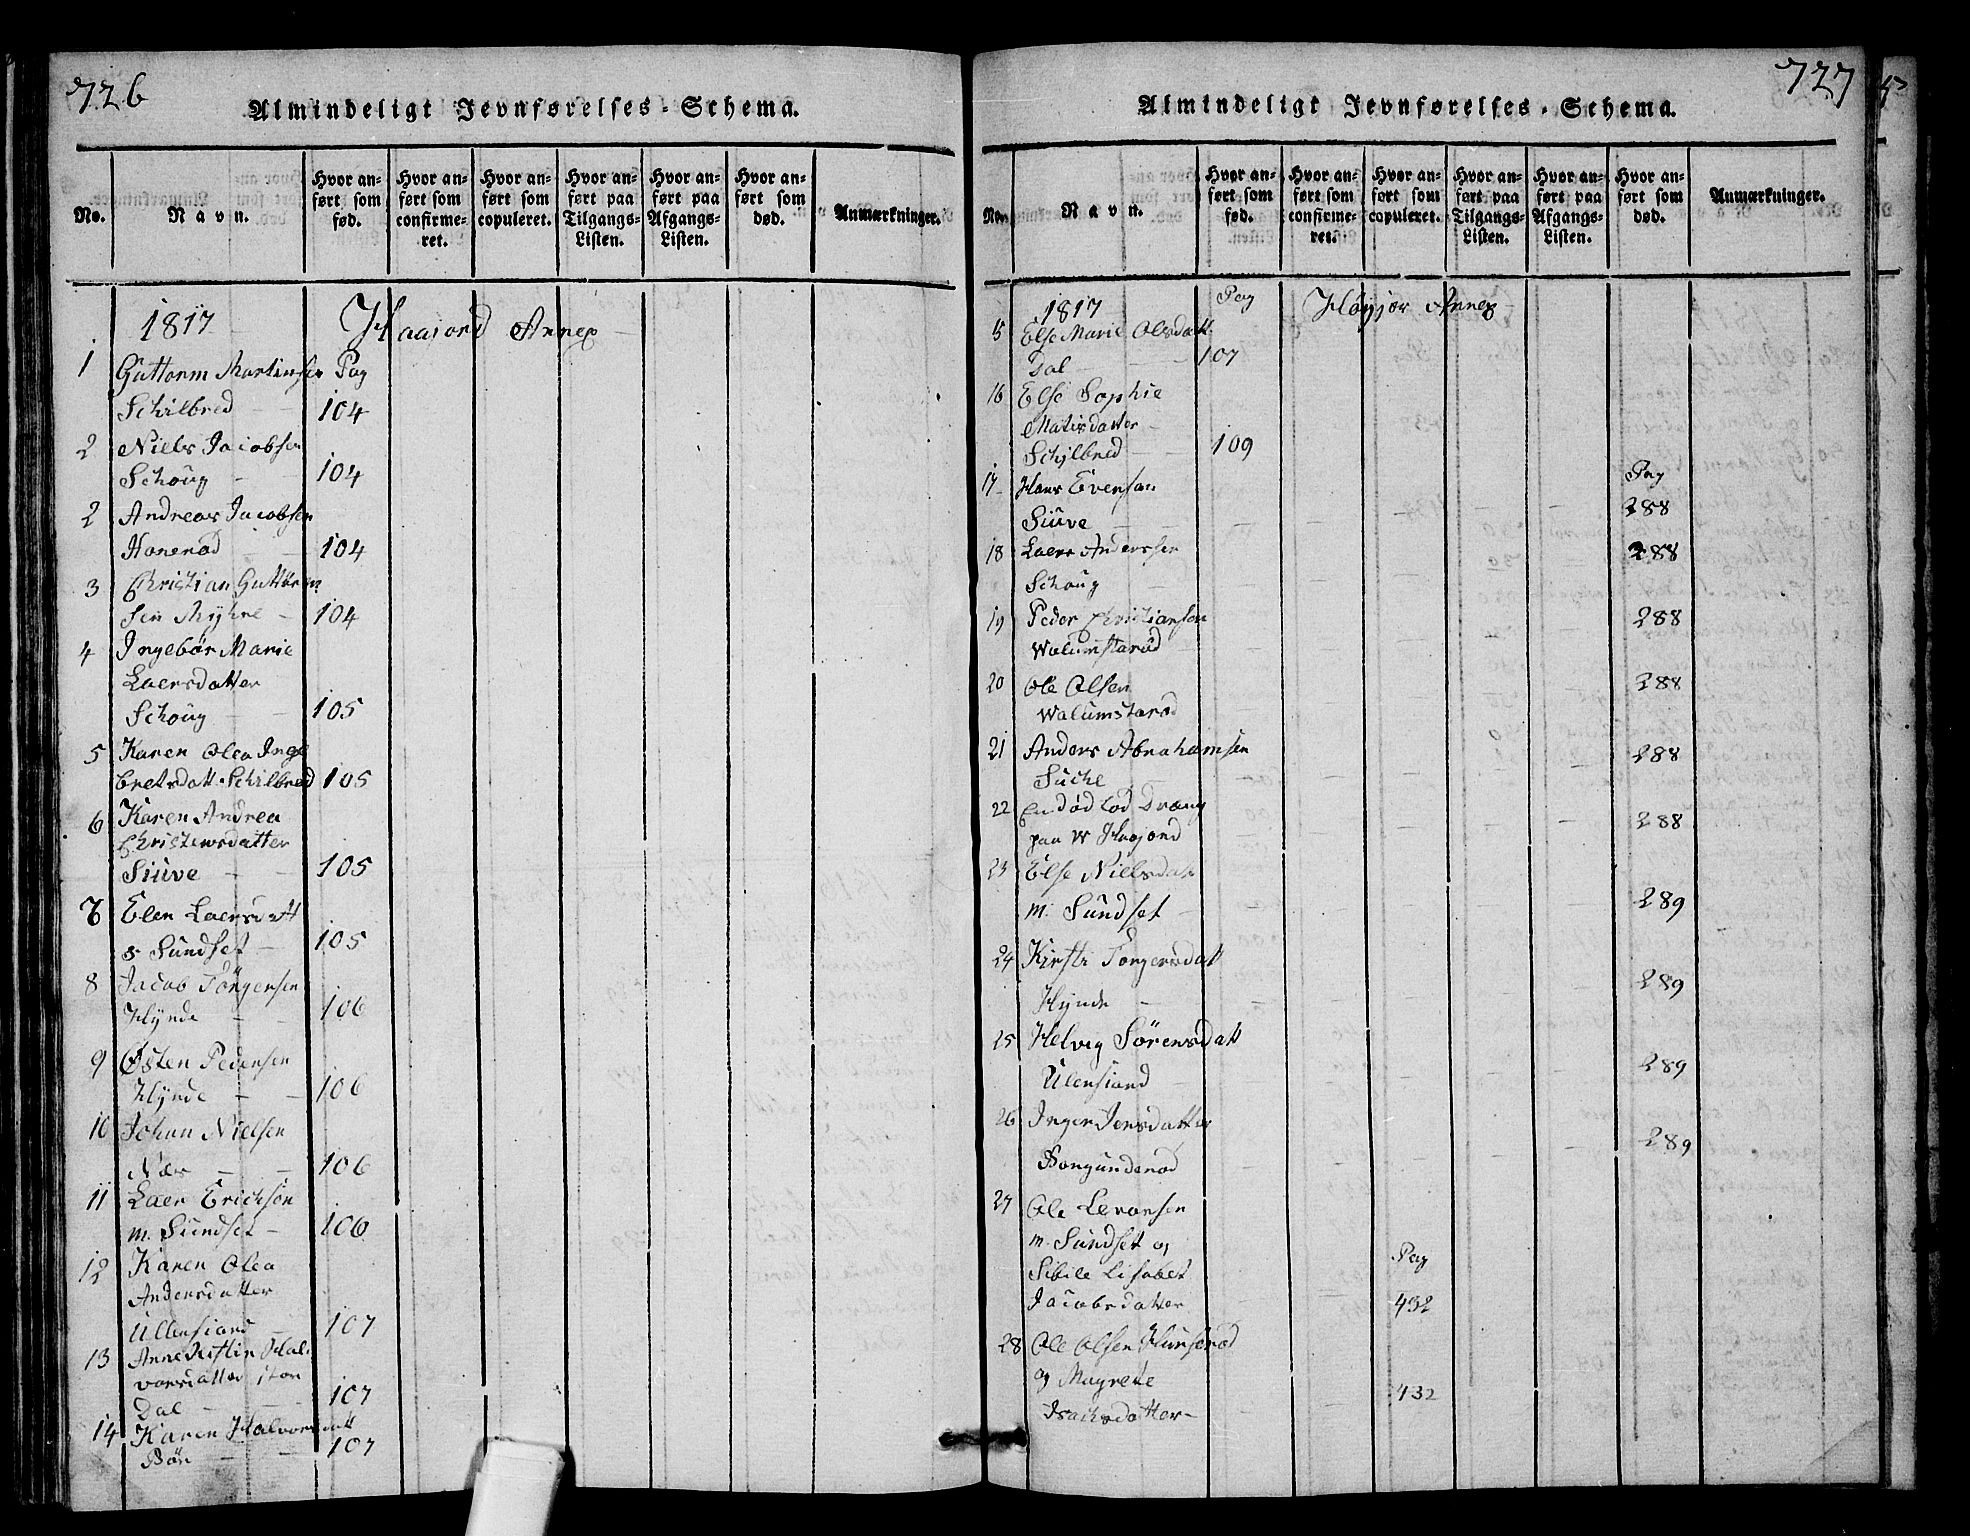 726
Almindeligt Jevnførelses-Schema.
No.
Navn.
Hvor anført som fød.
Hvor anført som confirmeret.
Hvor anført som copuleret.
Hvor anført paa Tilgangs-Listen.
Hvor anført paa Afgangs-Listen.
Hvor anført som død.
Anmærkninger.
1817 Annex
1 Guttorm Martinsen Pag
Schilbred 104
2 Niels Jacobsen
Schoug 104
2 Andreas Jacobsen
Honerød 104
3 Christian Guttorm
sen Myhre 104
4 Ingebor Marie
Laersdatter
Schoug 105
5 Karen Olea Inge
bretsdatt. Schilbred 105
6 Karen Andrea
Christensdatter
Siuve 105
7 Elen Laersdatt
s Sundset 105
8 Jacob Törgersen
Hynde 106
9 Østen Pedersen
Hynde 106
10 Johan Nielsen
Nær 106
11 Laer Ericksön
m. Sundset 106
12 Karen Olea
Andersdatter
Ullensiand 107
13 Anne Kistin Hal
vorsdatter
Dal 107
14 Karen Halvorsdatt
Bön 107
727
Almindeligt Jevnførelses-Schema.
No.
Navn.
Hvor anført som fød.
Hvor anført som confirmeret.
Hvor anført som copuleret.
Hvor anført paa Tilgangs-Listen.
Hvor anført paa Afgangs-Listen.
Hvor anført som død.
Anmærkninger.
1817 Pag Annex
5 Else Marie Olsdatt.
Dal 107
16 Else Sophie
Matisdatter
Schjlbred 109
17 Hans Evensen Pag
Siuve 288
18 Laers Anderssen 288
Schoug
19 Peder Christiansen 288
Walumstarød
20 Ole Olsen 288
Walumstarød
21 Anders Abrahamsen 288
Suche
22 En død Dræng 288
paa W
23 Else Nielsdatt
m. Sundset 289
24 Kirsti Torgersdatt
Hynde 289
25 Helvig Sörensdatt
Ulensiand 289
26 Inger Jensdatter
Borgunderød 289
27 Ole Levorsen
m. Sundset og
Sibile Lisabet Pag
Jacobsdatter 432
28 Ole Olsen Hunserød
og Magrete
Isachsdatter 432